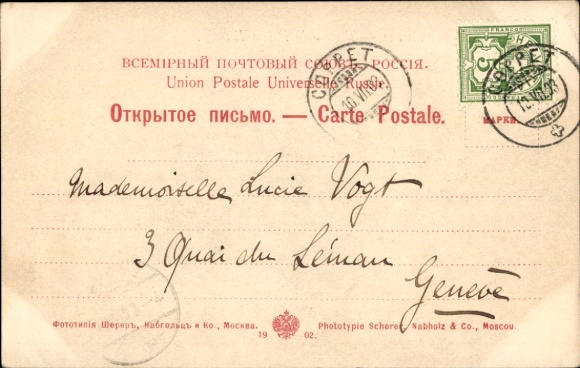 FRANCO
5
ВСЕМІРНЫЙ ПОЧТОВЫЙ СОЮЗЪ. РОССІЯ.
Union Postale Universelle Russie.
COPPET
10.VII.03
COPPET
Открытое письмо. — Carte Postale.
МАРКИ
Mademoiselle Lucie Vogt
3 Quai du Léman
Genève
Фототипія Шереръ, Набгольцъ и Ко., Москва.
Phototypie Scherer, Nabholz & Co., Moscou.
1902.